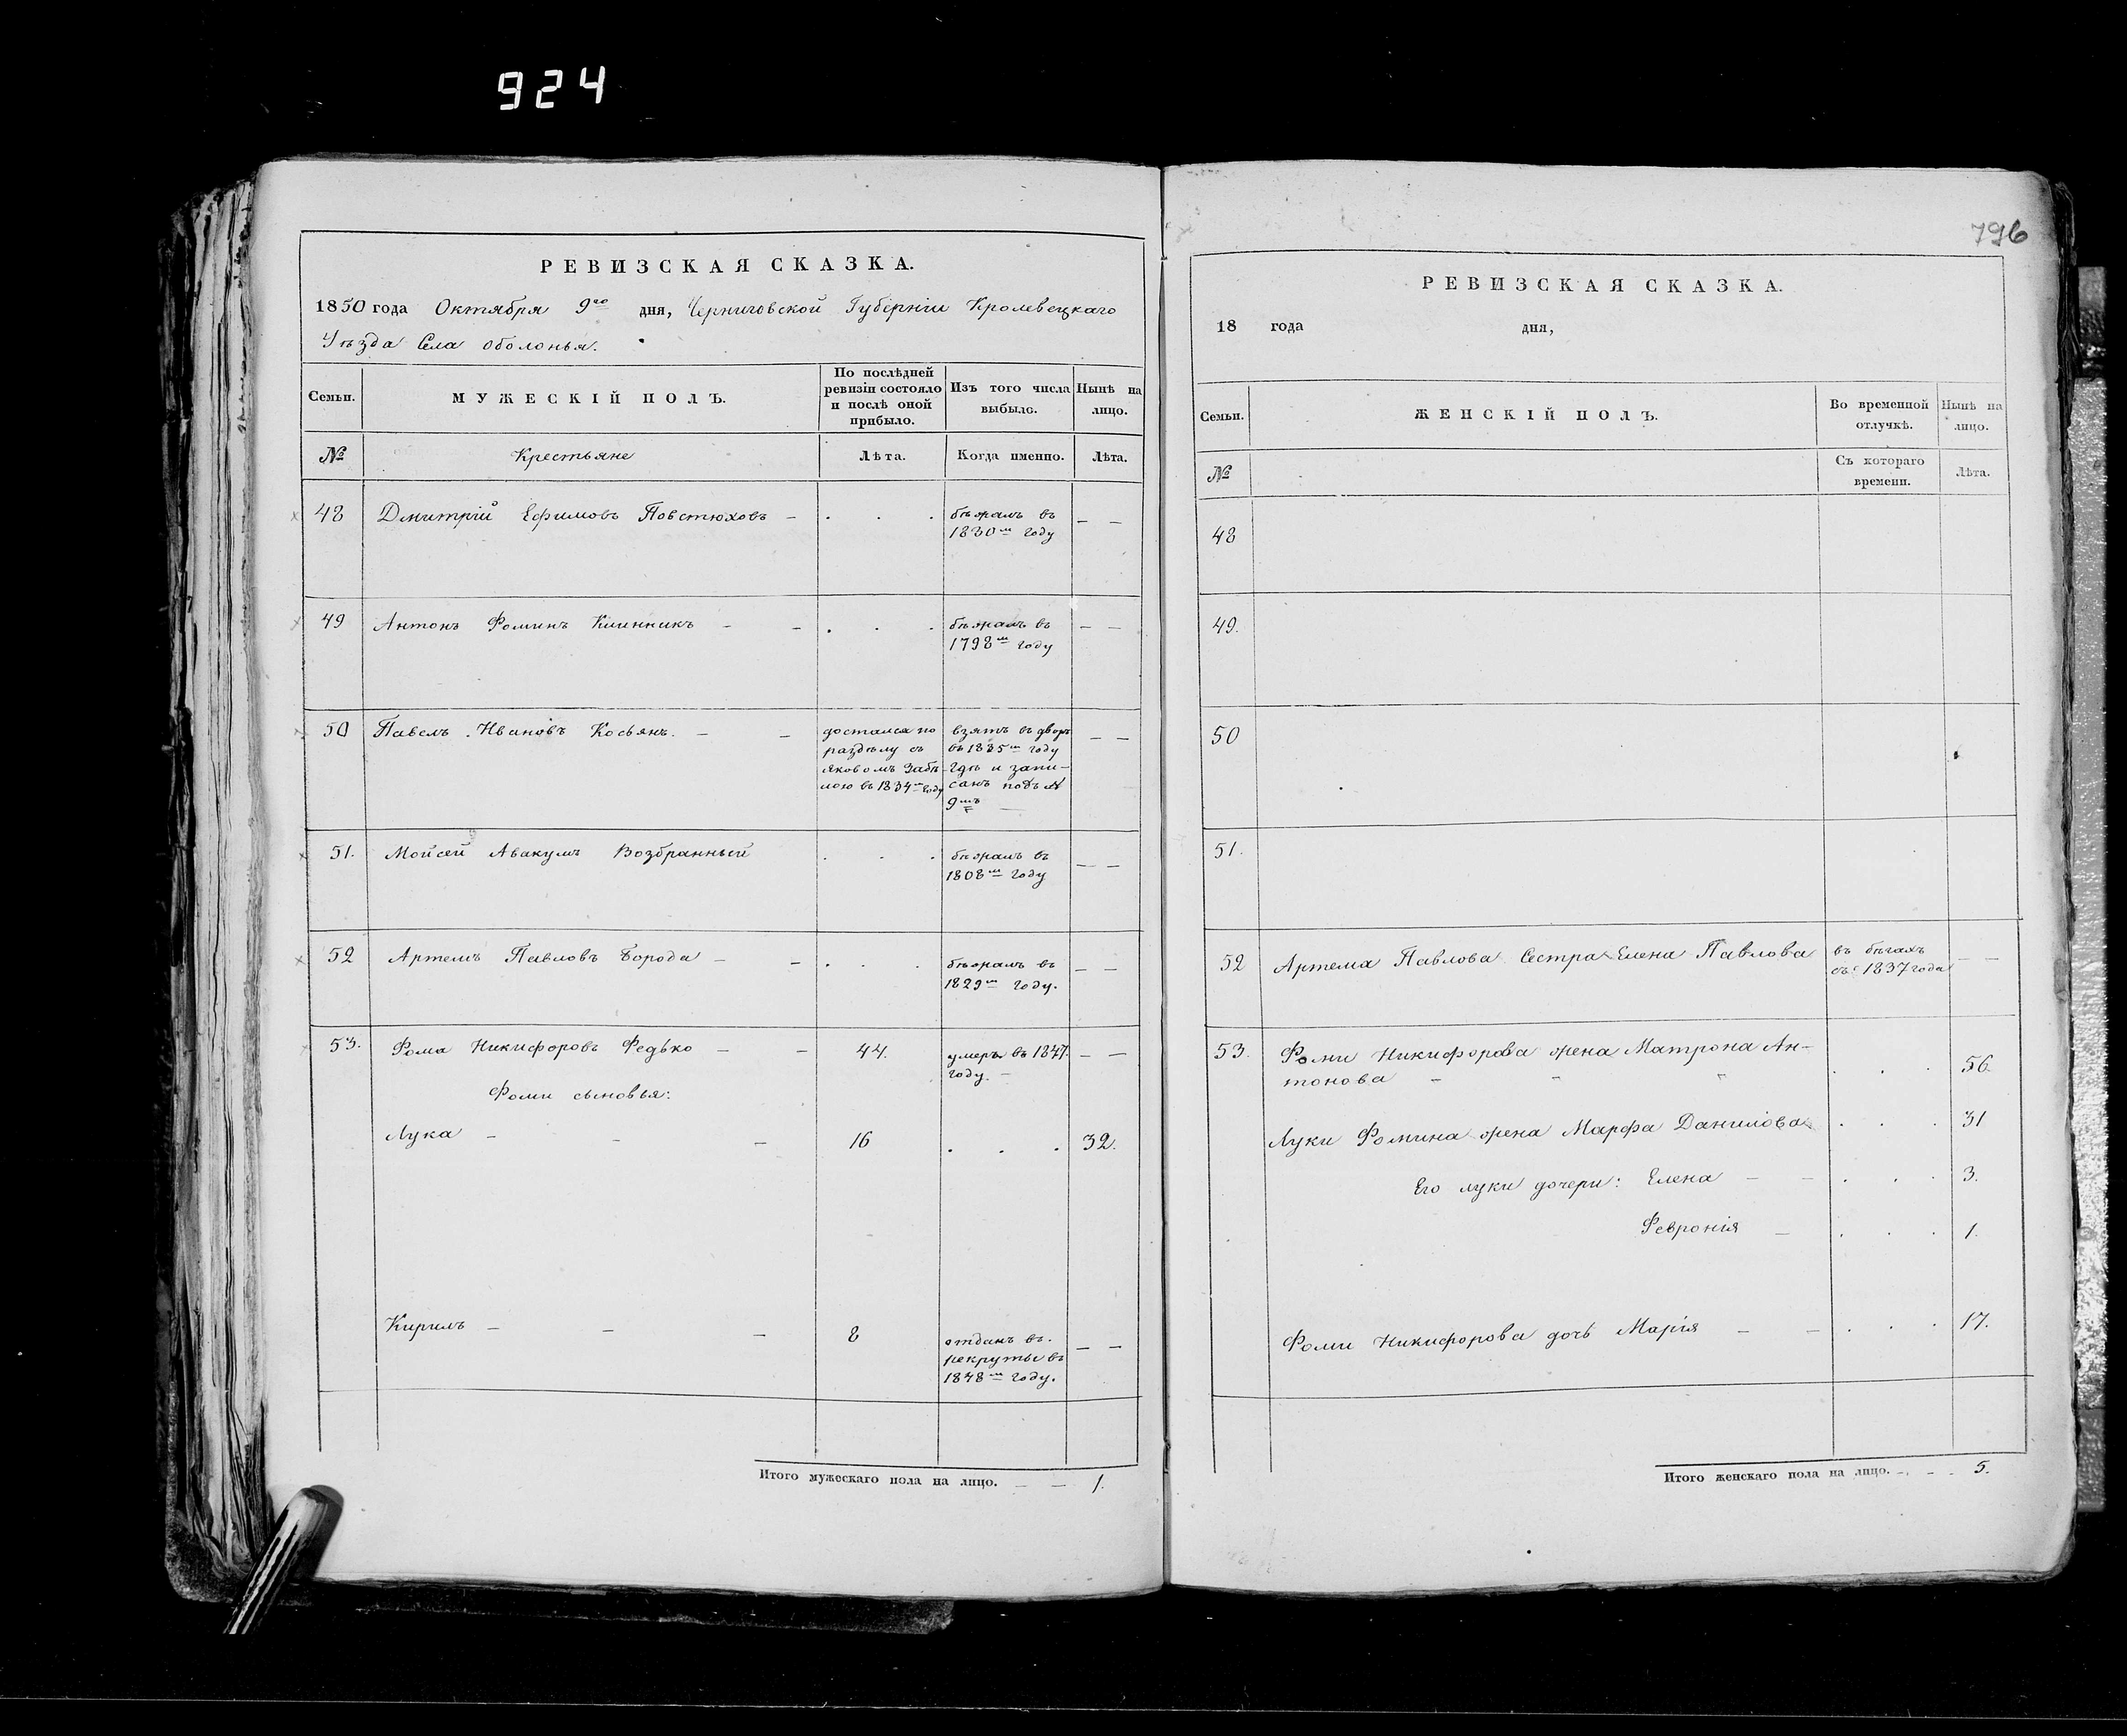 924
РЕВИЗСКАЯ СКАЗКА.
1850 года Октября 9го дня, Черниговской Губерніи Кролевецкаго
Уѣзда Села Оболонья.
Семьи.
МУЖЕСКІЙ ПОЛЪ.
По послѣдней
ревизіи состояло
и послѣ оной
прибыло.
Изъ того числа
выбыло.
Нынѣ на
лицо.
№
Крестьяне
Лѣта.
Когда именно.
Лѣта.
48
Дмитрій Ефимовъ Повстюховъ
бѣжалъ въ
1830м году
49
Антонъ Фоминъ
бѣжалъ въ
1798м году
50
Павелъ Ивановъ Косьянъ.
достался по
раздѣлу съ
Яковомъ Забѣ-
лою въ 1834м году
взятъ въ дворъ
въ 1835м году
гдѣ и запи-
санъ подъ №
9мъ
51.
Мойсей Авакумъ Возбранный
бѣжалъ въ
1808м году
52
Артемъ Павловъ Борода
бѣжалъ въ
1829м году.
53.
Фома Никифоровъ Федько
44.
умеръ въ 1847.
году.
Фоми сыновья:
Лука
16
32.
Кирилъ
8
отданъ въ
рекруты въ
1848м году.
Итого мужескаго пола на лицо. 1.
796
РЕВИЗСКАЯ СКАЗКА.
18 года дня,
Семьи.
ЖЕНСКІЙ ПОЛЪ.
Во временной
отлучкѣ.
Нынѣ на
лицо.
№
Съ котораго
времени.
Лѣта.
48
49.
50
51.
52
Артема Павлова Сестра Елена Павлова
въ бѣгахъ
съ 1837 года
53.
Фоми Никифорова жена Матрона Ан-
тонова
56
Луки Фомина жена Марфа Данилова
31
Его луки дочери: Елена
3.
Февронія
1.
Фоми Никифорова дочь Марія
17.
Итого женскаго пола на лицо. 5.